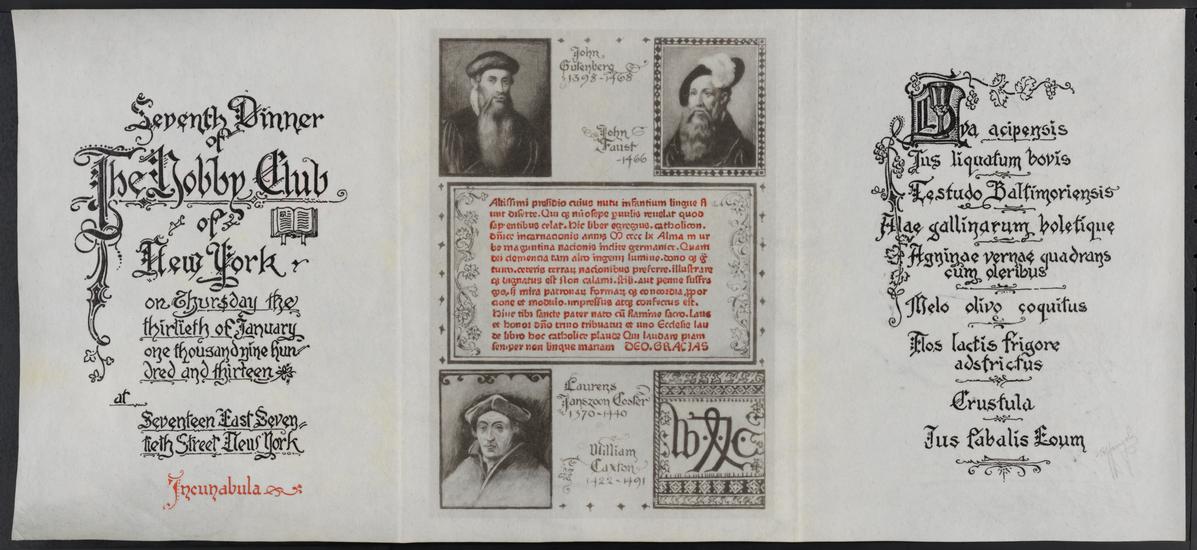 Seventh Dinner
of
The Hobby Club
of
New York
on Thursday the
thirtieth of January
one thousand nine hun-
dred and thirteen
at
Seventeen East Seven-
tieth Street New York
Incunabula
John
Gutenberg
1398-1468
John
Faust
-1466
Altissimi presidio cuius nutu infantium lingue fi
unt diserte. Qui
sapientibus celat. Hic liber egregius. catholicon.
dñice incarnacionis annis M cccc lx Alma in ur
be maguntina nacionis inclite germanice. Quam
dei clemencia tam alto ingenij lumine. dono
ceteris terrarum nacionibus preferre. illustrare
dignatus est Non calami. stili. aut penne suffra
gio, sed mira patronarum formarum concordia
cione et modulo. impressus atque confectus est.
Hinc tibi sancte pater nato cū flamine sacro. Laus
et honor dño trino tribuatur et uno Ecclesie lau
de libro hoc catholice plaude Qui laudare piam
semper non linque mariam DEO. GRACIAS
Laurens
Janszoon Coster
1370-1440
William
Caxton
1422-1491
W C
Ova acipensis
Jus liquatum bovis
Testudo Baltimoriensis
Alae gallinarum boletique
Agninae vernae quadrans
cum oleribus
Melo olivo coquitus
Flos lactis frigore
adstrictus
Crustula
Jus fabalis Eoum